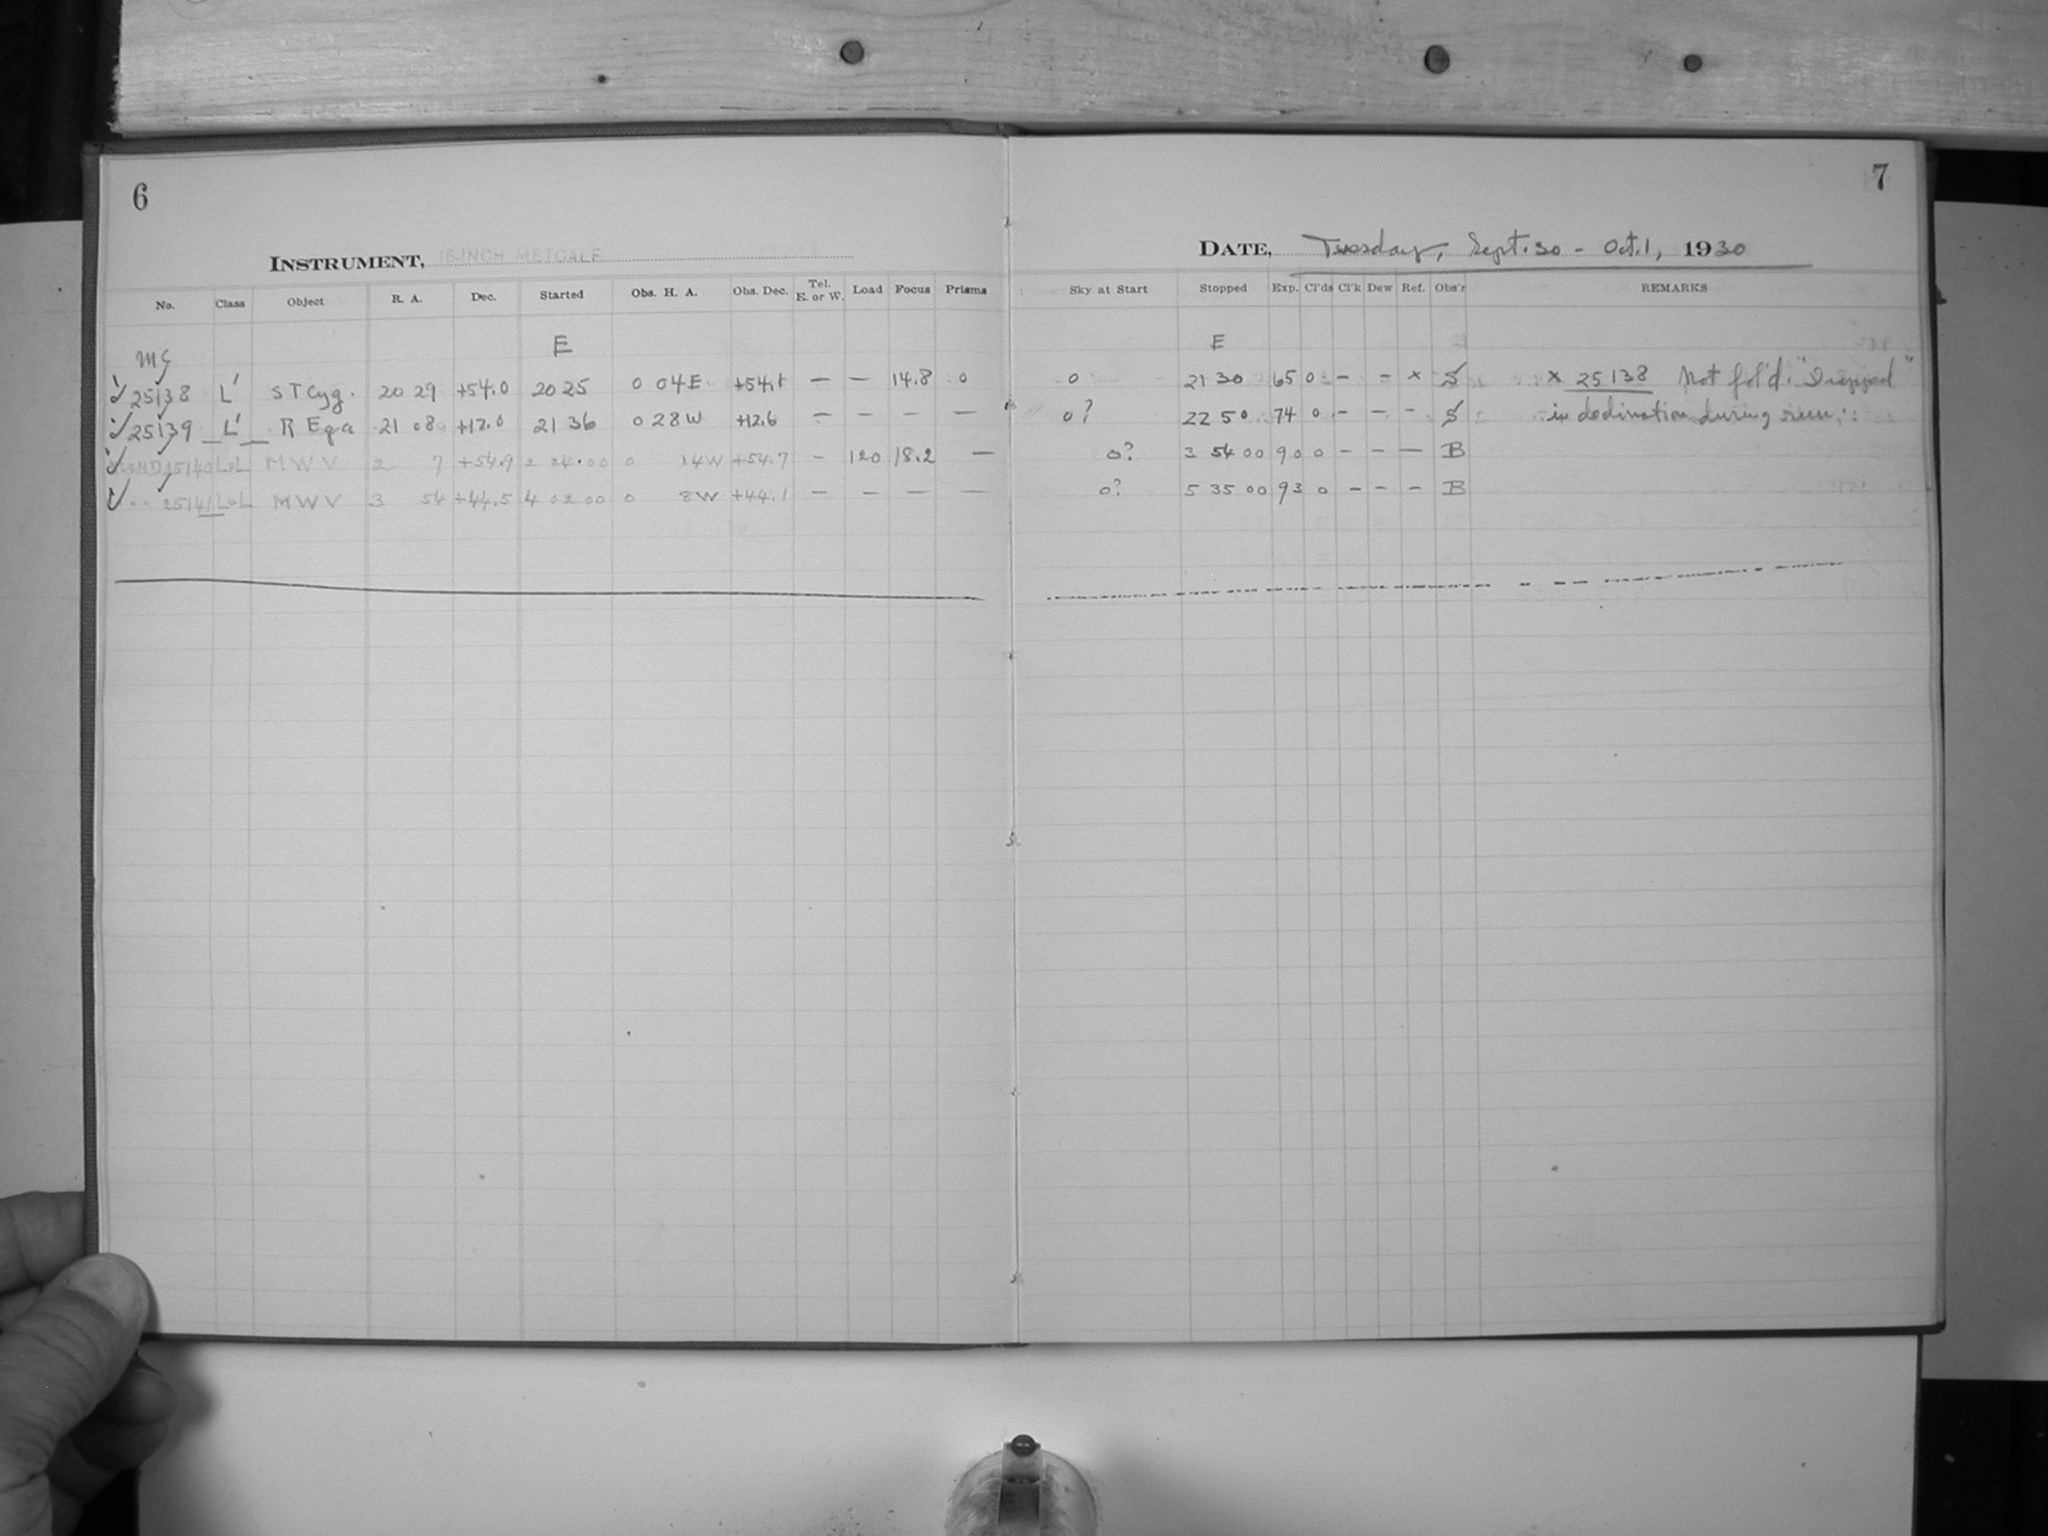 6
INSTRUMENT, 16-INCH METCALF
No. Class Object R. A. Dec. Started Obs. H. A. Obs. Dec. Tel. E. or W. Load Focus Prisms
E
MC
25138 L' ST Cyg. 20 29 +54.0 20 25 0 04 E. +54.1 — — 14.8 0
25139 L' R Equ 21 08 +12.0 21 36 0 28 W +12.6 — — — —
25140 L+L MWV 2 7 +54.9 2 24 00 0 14W +54.7 — 120 18.2 —
" " 25141 L+L MWV 3 54 +44.5 4 02 00 0 8W +44.1 — — — —
7
DATE, Tuesday, Sept. 30 - Oct. 1, 1930
Sky at Start Stopped Exp. Cl'ds Cl'k Dew Ref. Obs'r REMARKS
E
0 21 30 65 0 - - x S x 25138 Not fol'd.
0? 22 50 74 0 - - - S in declination during run.
0? 3 54 00 90 0 - - — B
0? 5 35 00 93 0 - - - B